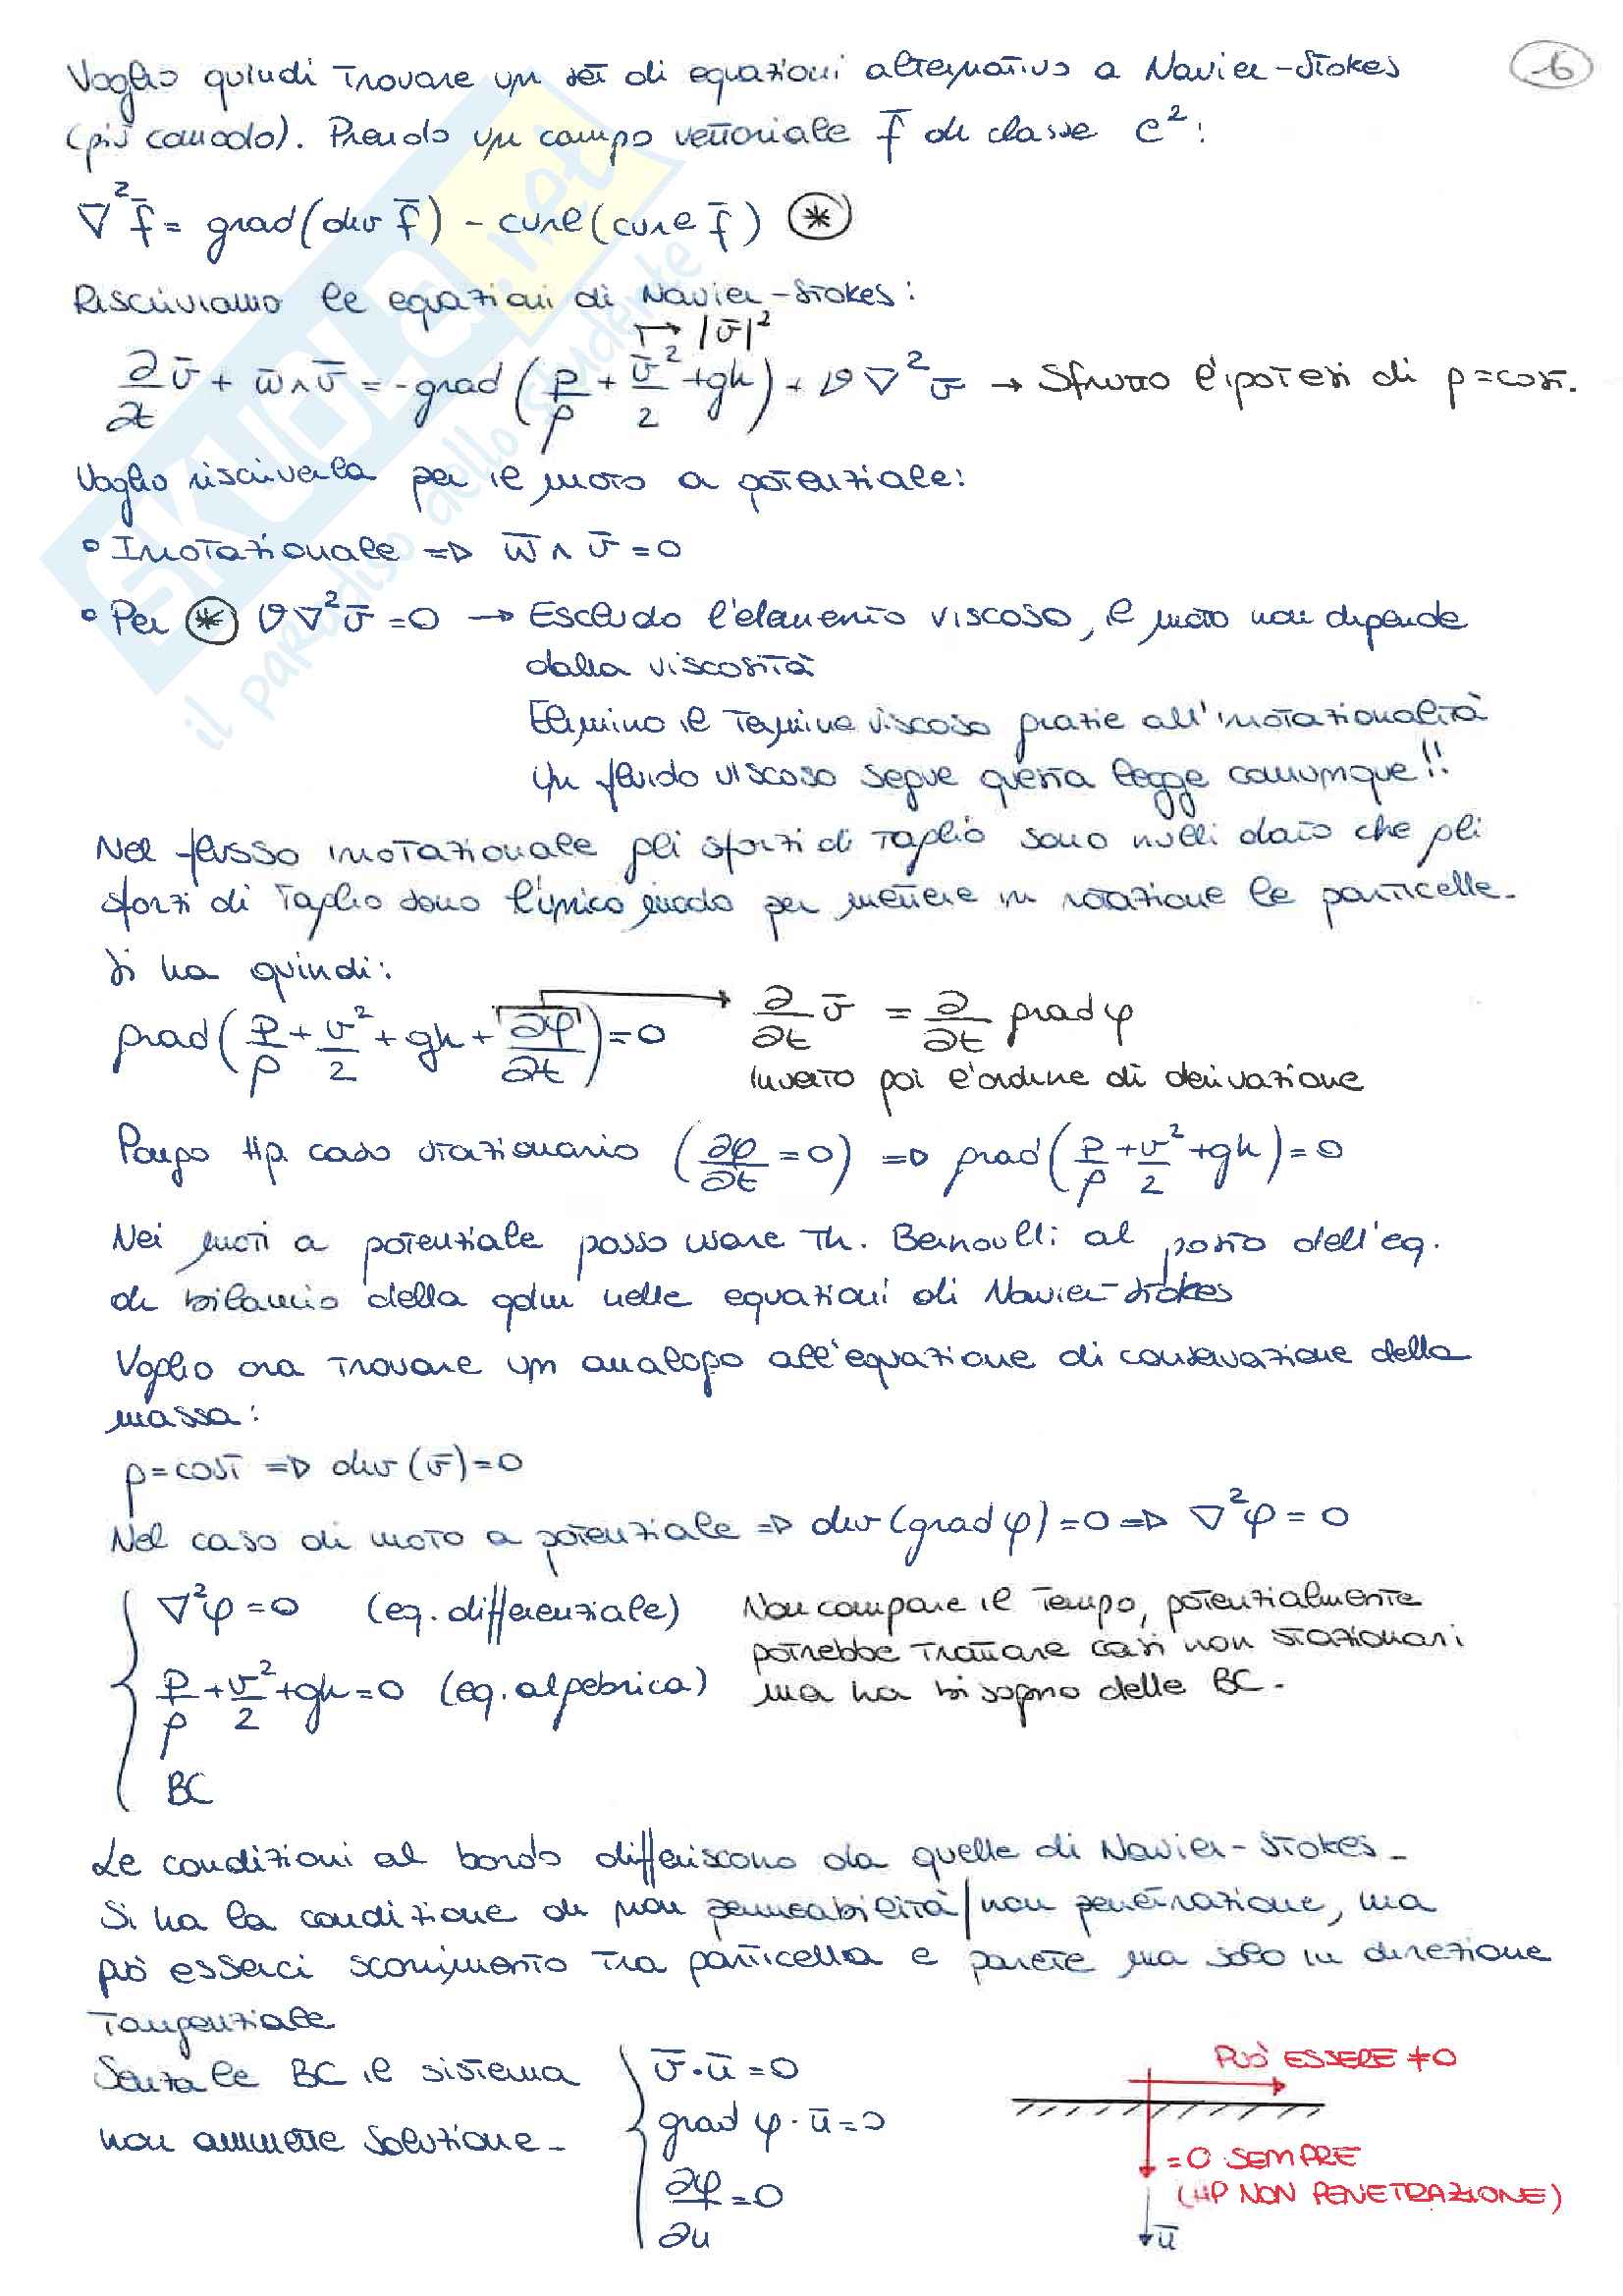 Voglio quindi trovare un set di equazioni alternativo a Navier-Stokes
16
(più comodo). Prendo un campo vettoriale f̄ di classe C²:
∇²f̄ = grad(div f̄) - curl(curl f̄) ⊛
Riscriviamo le equazioni di Navier-Stokes:
↦ |v̄|²
∂/∂t v̄ + w̄ ∧ v̄ = -grad(p/ρ + v̄²/2 + gh) + ν∇²v̄ → Sfrutto l'ipotesi di ρ=cost.
Voglio riscriverla per il moto a potenziale:
• Irrotazionale ⇒ w̄ ∧ v̄ = 0
• Per ⊛ ν∇²v̄ = 0 → Escludo l'elemento viscoso, il moto non dipende
dalla viscosità
Elimino il termine viscoso grazie all'irrotazionalità
Un fluido viscoso segue questa legge comunque!!
Nel flusso irrotazionale gli sforzi di taglio sono nulli dato che gli
sforzi di taglio sono l'unico modo per mettere in rotazione le particelle.
Si ha quindi:
grad(p/ρ + v²/2 + gh + ∂φ/∂t) = 0 → ∂/∂t v̄ = ∂/∂t grad φ
Inverto poi l'ordine di derivazione
Pongo Hp. caso stazionario (∂φ/∂t = 0) ⇒ grad(p/ρ + v²/2 + gh) = 0
Nei moti a potenziale posso usare Th. Bernoulli al posto dell'eq.
di bilancio della qdm nelle equazioni di Navier-Stokes
Voglio ora trovare un analogo all'equazione di conservazione della
massa:
ρ=cost ⇒ div(v̄)=0
Nel caso di moto a potenziale ⇒ div(grad φ)=0 ⇒ ∇²φ = 0
∇²φ = 0 (eq. differenziale) Non compare il tempo, potenzialmente
potrebbe trattare casi non stazionari
p/ρ + v²/2 + gh = 0 (eq. algebrica) ma ha bisogno delle BC.
BC
Le condizioni al bordo differiscono da quelle di Navier-Stokes.
Si ha la condizione di non permeabilità/non penetrazione, ma
può esserci scorrimento tra particella e parete ma solo in direzione
tangenziale
Senza le BC il sistema
non ammette soluzione.
v̄·n̄ = 0
grad φ·n̄ = 0
∂φ/∂n = 0
PUÒ ESSERE ≠0
=0 SEMPRE
(HP NON PENETRAZIONE)
n̄
SKUOLA.net
il paradiso dello studente